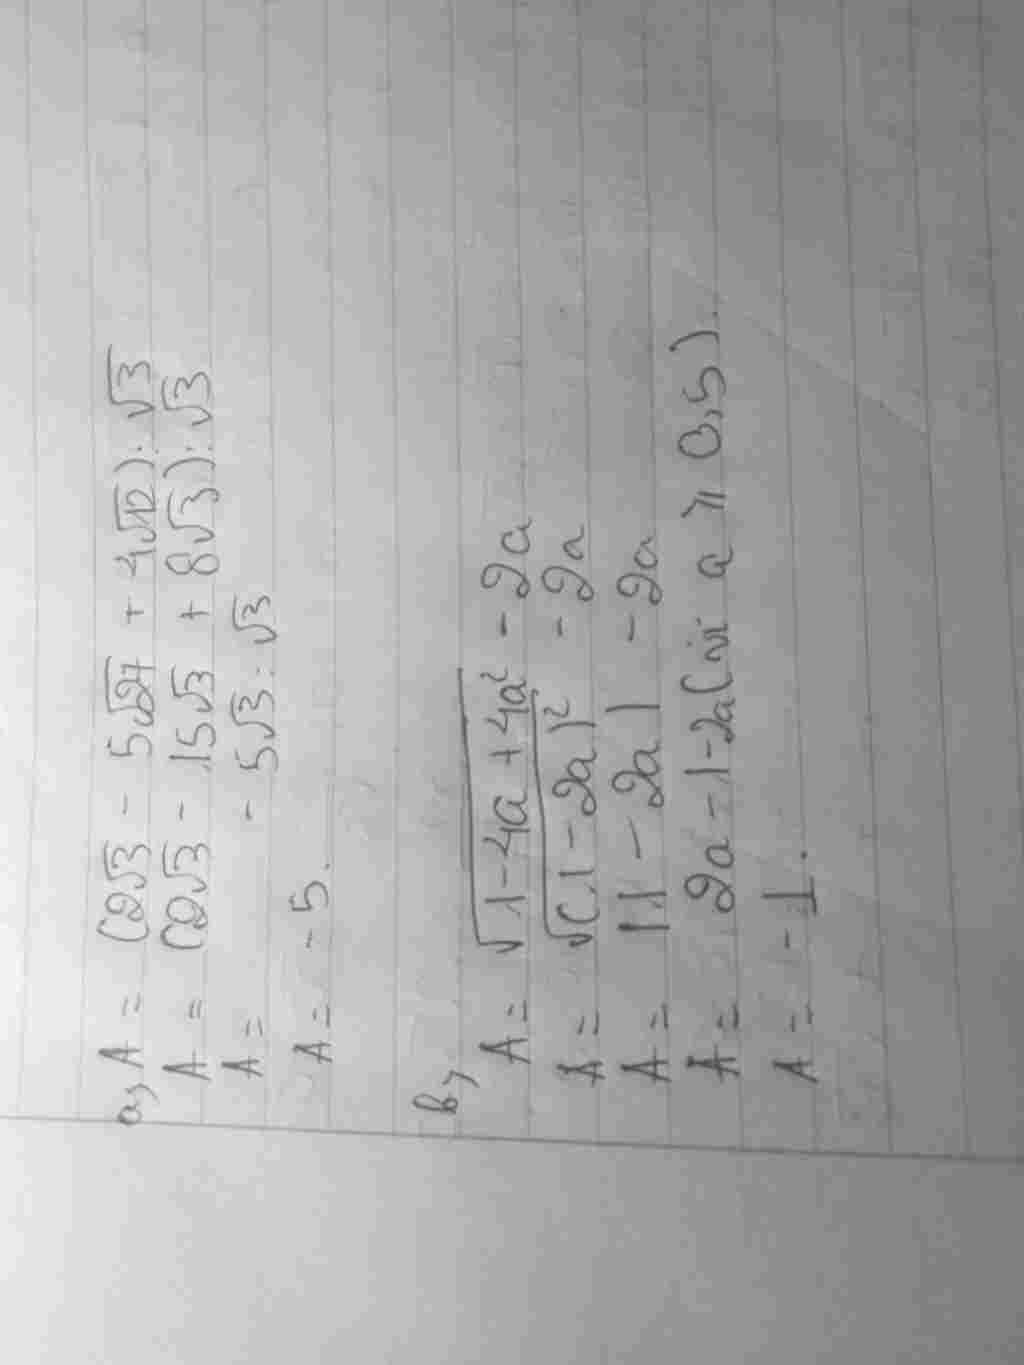 a, A = (2√3 - 5√27 + 4√12) : √3
A = (2√3 - 15√3 + 8√3) : √3
A = - 5√3 : √3
A = - 5.
b,
A = √1-4a+4a² - 2a
A = √(1-2a)² - 2a
A = |1 - 2a| - 2a
A = 2a - 1 - 2a (vì a ≥ 0,5).
A = - 1.